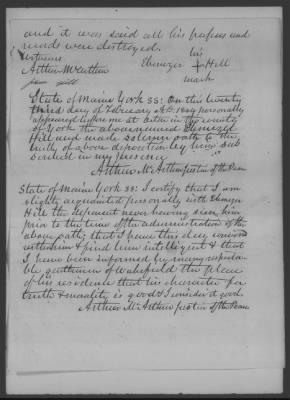 and it was said all his papers and
were destroyed.
Witness his
Arthur McArthur Ebenezer + Hill
mark
State of Maine York SS: On this twenty
third day of February A.D. personally
appeared before me at in the county
of York the above named Ebenezer
Hill and made solemn oath to the
truth of above deposition by him sub
scribed in my presence
Arthur McArthur Justice of the Peace
State of Maine York SS: I certify that I am
slightly acquainted personally with Ebenezer
Hill the deponent never having seen him
prior to the time of the administration of the
above oath, that I have this day conversed
with him & find him intelligent & that
I have been informed by many respecta
ble gentlemen of Wakefield the place
of his residence that his character for
truth & morality is good & I consider it good.
Arthur McArthur Justice of the Peace